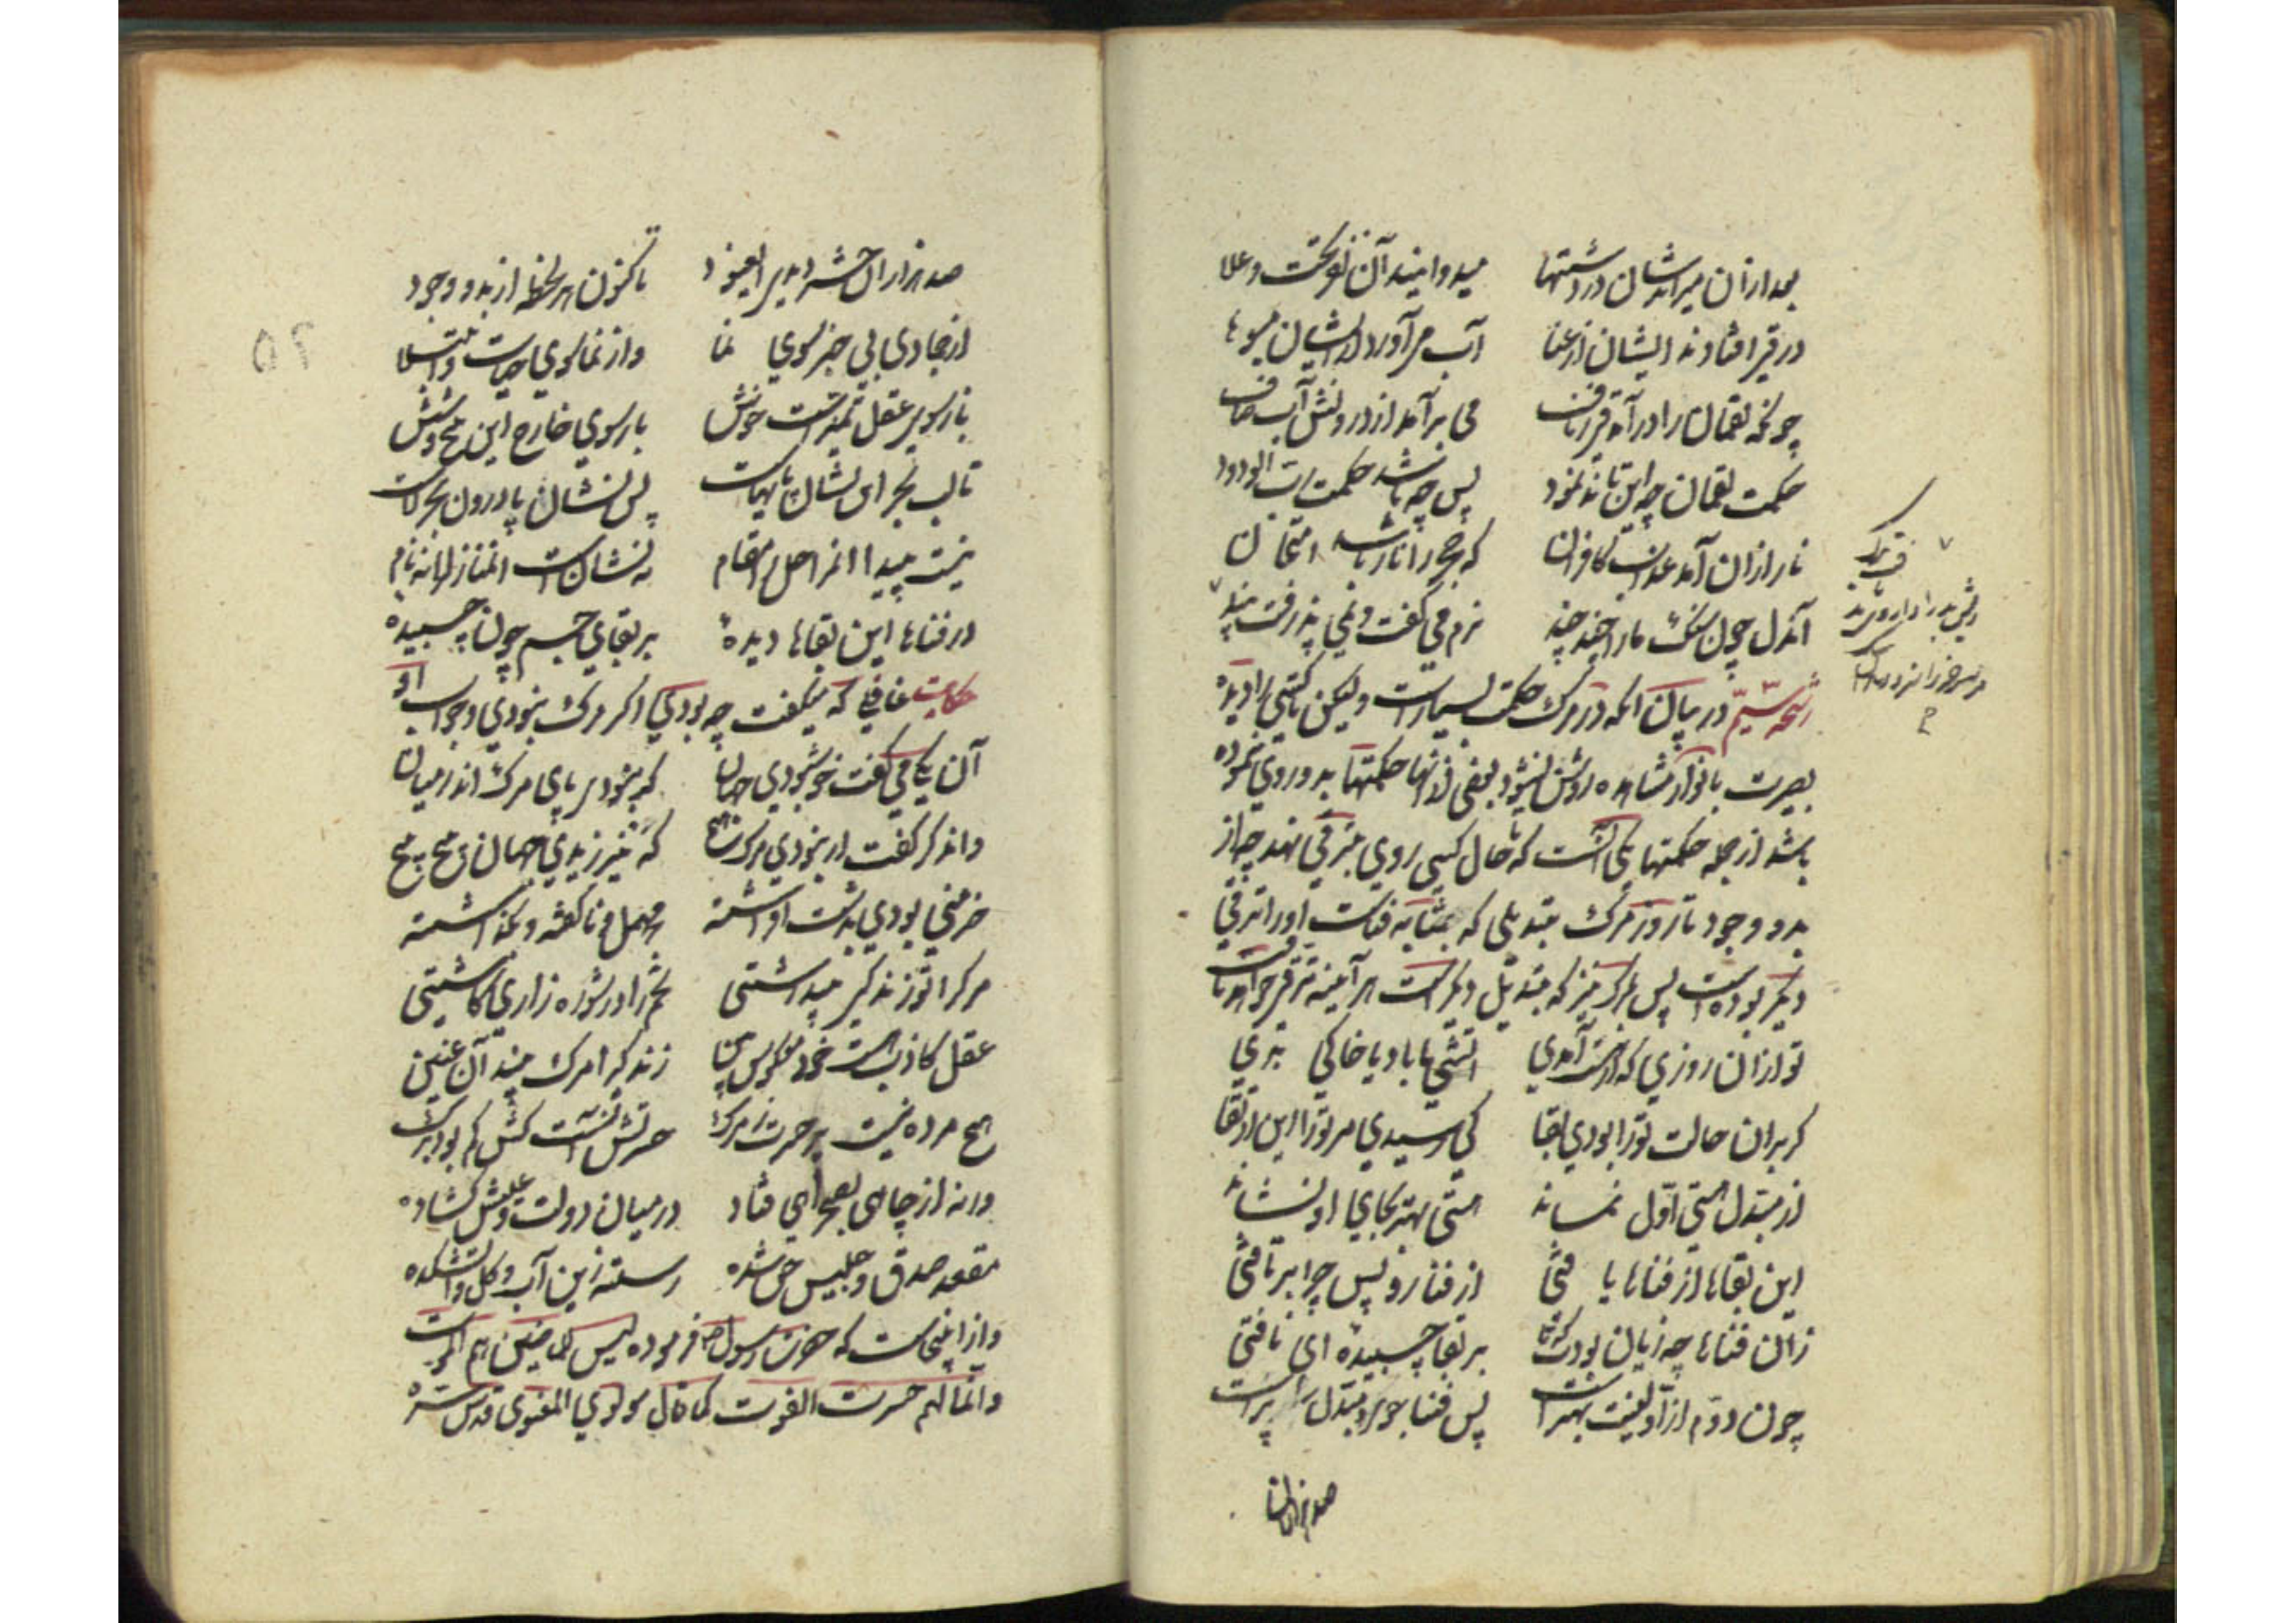 بعد ازان میراندشان در دشتها میدوانید آن نفر تحت و علا
در قی افتادند ایشان از عنا آب می آورد ز ایشان میوها
چونکه لقمان را در آمد قی ز ناف می برآمد از درونش آب صاف
حکمت لقمان چو این تاند نمود پس چه باشد حکمت رب الودود
نار ازان آمد عذاب کافران که حجر را نار باشد امتحان
آن دل چون سنگ ما را چند چند نرم می گفت و نمی پذرفت پند
ریش بد را داروی بد
مر سر خر را سزد دندان سگ
رشحه سیم در بیان آنکه در مرگ حکمت بسیارست ولیکن تا کسی را دیده
بصیرت بانوار مشاهده روشن نشود بعضی از آنها حکمتها بدو روی ننموده
باشد از جمله حکمتها یکی آنست که تا حال کسی روی بترقی نهد چه از
بدو وجود تا روز مرگ تبدیلی که بمثابه فناست او را ترقی
دیگر بوده است پس مرگ نیز که تبدیل دیگر است هر آینه ترقی خواهد یافت
تو ازان روزی که در هست آمدی آتشی یا باد یا خاکی بدی
گر بران حالت ترا بودی بقا کی رسیدی مر ترا این ارتقا
از مبدل هستی اول نماند هستی بهتر بجای او نشاند
این بقاها از فناها یافتی از فنا رو پس چرا برتافتی
زان فناها چه زیان بودت که تا بر بقا چسبیده ای نافتی
چون دوم از اولینت بهترست پس فنا جوی و مبدل را پرست
صد هزاران
صد هزاران حشر دیدی ای عنود تاکنون هر لحظه از بدو وجود
از جمادی بی خبر سوی نما وز نما سوی حیات و ابتلا
باز سوی عقل و تمییزات خوش باز سوی خارج این پنج و شش
تا لب بحر این نشان پایهاست پس نشان پا درون بحر لاست
نیست پیدا آن مراحل را مقام نه نشانست آن منازل را نه نام
در فناها این بقاها دیده بر بقای جسم چون چسبیده
حکایت غافلی که میگفت چه بودی اگر مرگ نبودی و جواب او
آن یکی می گفت خوش بودی جهان گر نبودی پای مرگ اندر میان
وان دگر گفت ار نبودی مرگ هیچ که نیرزیدی جهان پیچ پیچ
خرمنی بودی بدشت افراشته مهمل و ناکوفته بگذاشته
مرگ را تو زندگی پنداشتی تخم را در شوره زاری کاشتی
عقل کاذب هست خود معکوس بین زندگی را مرگ بیند آن غبین
هیچ مرده نیست پر حسرت ز مرگ حسرتش آنست کش کم بود برگ
ورنه از چاهی بصحرا می فتاد در میان دولت و عیش گشاد
مقعد صدق و جلیس حق شده رسته زین آب و گل و آتشکده
و از اینجاست که حضرت رسول ص فرموده لیس للماضین هم الموت
وانما لهم حسرت الفوت کما قال مولوی المعنوی قدس سره